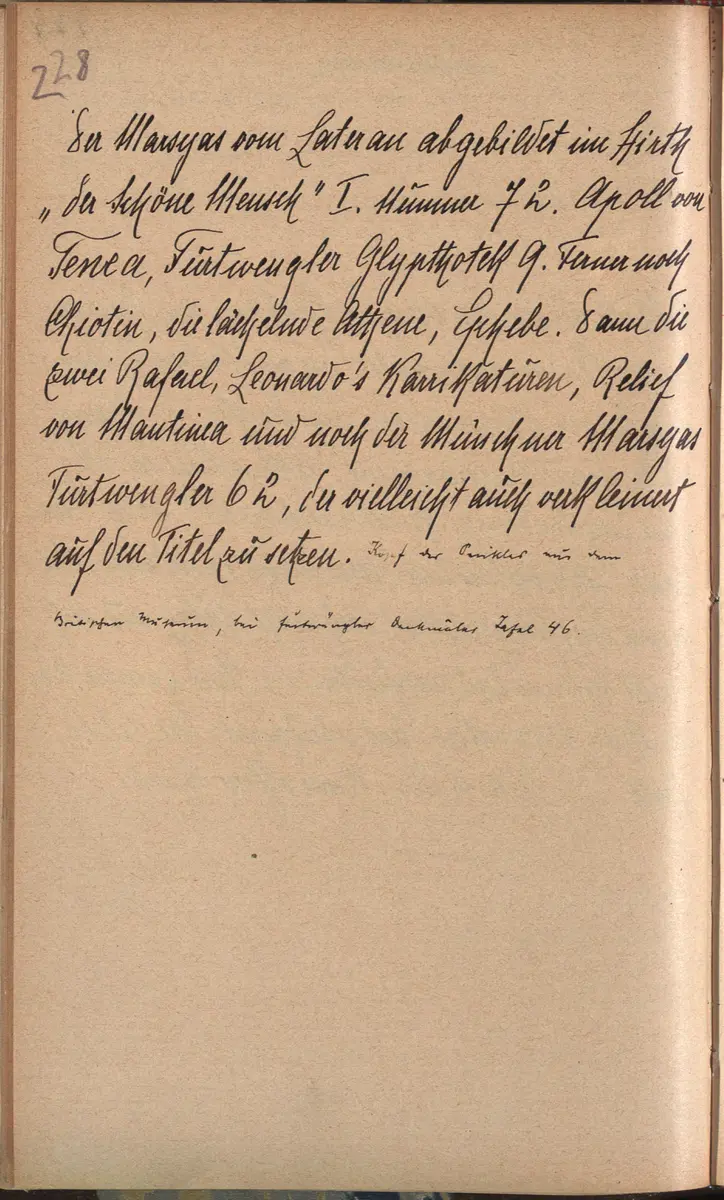 228
Der Marsyas vom Lateran abgebildet im Hirth
„der schöne Mensch" I. Nummer 72. Apoll von
Tenea, Furtwengler Glypthotek 9. Ferner noch
Chiotin, die lächelnde Athene, Ephebe. Dann die
zwei Rafael, Leonardo's Karrikaturen, Relief
von Mantinea und noch der Münchner Marsyas
Furtwengler 62, der vielleicht auch verkleinert
auf den Titel zu setzen. Kopf des Perikles aus dem
Britischen Museum, bei Furtwängler Denkmäler Tafel 46.